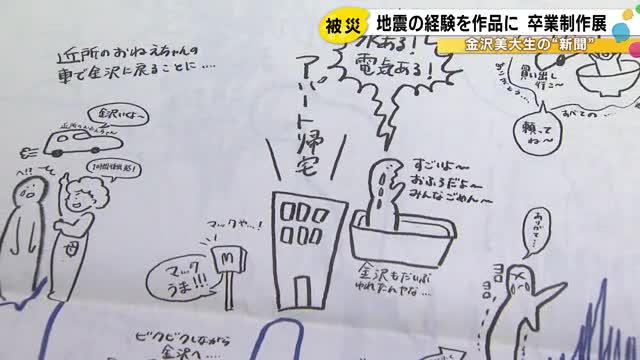 被災
地震の経験を作品に 卒業制作展
金沢美大生の“新聞”
近所のおねえちゃんの
車で金沢に戻ることに‥‥
金沢いくよ〜
近所のおねえちゃん
へ!?
母
アパート帰宅
水ある!
電気ある!
すごいよ〜
おふろだよ〜
みんなごめん〜
マックや〜!
M
マック
うま!!!
金沢もだいぶ
ゆれたんやな‥‥
買い出し
行こ〜
頼って
ね〜
すべての‥‥
ありがて‥‥
ヨロ
ヨロ
ビクビクしながら
金沢へ‥‥